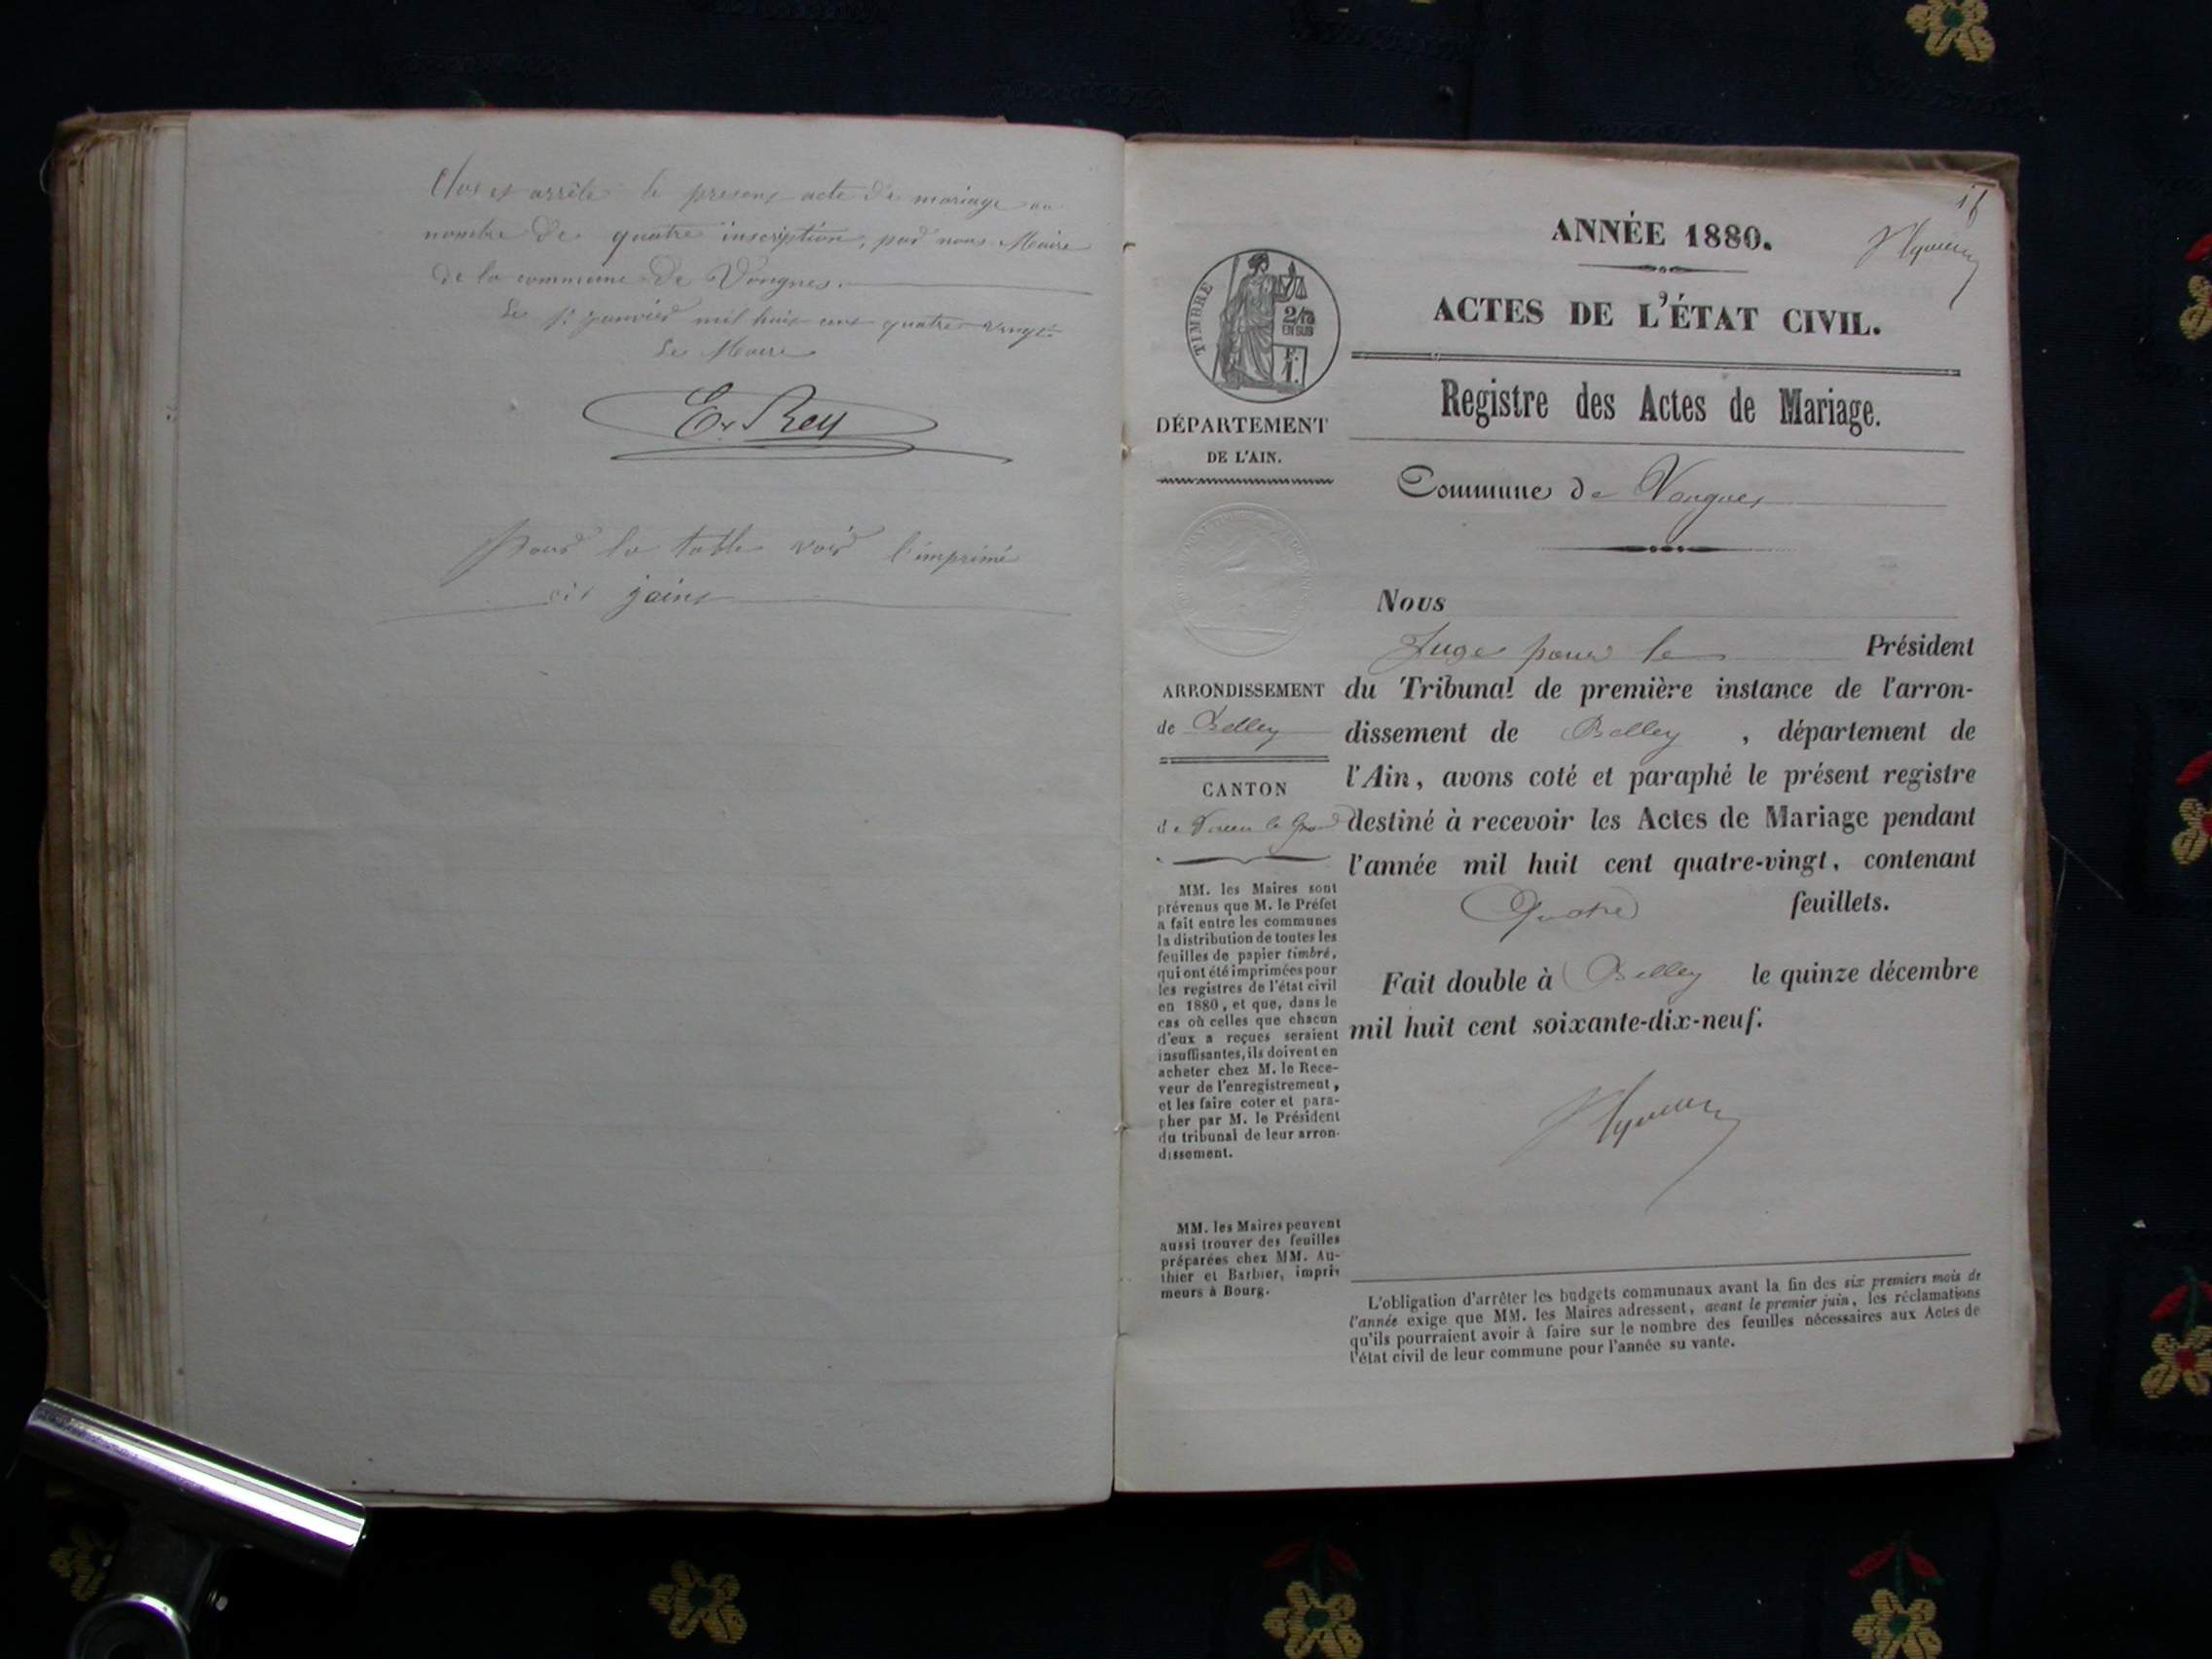 Clos et arrêté le present acte de mariage au
nombre de quatre inscription, par nous Maire
de la commune de Vongnes.
Le 1r janvier mil huit cent quatre vingt
Le Maire
E. Rey
Pour la table voir l'imprimé
ci joint
ANNÉE 1880.
ACTES DE L'ÉTAT CIVIL.
Registre des Actes de Mariage.
Commune de Vongnes
TIMBRE
2/10
EN SUS
F.
1.
DÉPARTEMENT
DE L'AIN.
ARRONDISSEMENT
de Belley
CANTON
de Virieu le Grand
MM. les Maires sont
prévenus que M. le Préfet
a fait entre les communes
la distribution de toutes les
feuilles de papier timbré,
qui ont été imprimées pour
les registres de l'état civil
en 1880, et que, dans le
cas où celles que chacun
d'eux a reçues seraient
insuffisantes, ils doivent en
acheter chez M. le Rece-
veur de l'enregistrement,
et les faire coter et para-
pher par M. le Président
du tribunal de leur arron-
dissement.
MM. les Maires peuvent
aussi trouver des feuilles
préparées chez MM. Au-
thier et Barbier, impri-
meurs à Bourg.
Nous
Juge pour le Président
du Tribunal de première instance de l'arron-
dissement de Belley, département de
l'Ain, avons coté et paraphé le présent registre
destiné à recevoir les Actes de Mariage pendant
l'année mil huit cent quatre-vingt, contenant
Quatre feuillets.
Fait double à Belley le quinze décembre
mil huit cent soixante-dix-neuf.
L'obligation d'arrêter les budgets communaux avant la fin des six premiers mois de
l'année exige que MM. les Maires adressent, avant le premier juin, les réclamations
qu'ils pourraient avoir à faire sur le nombre des feuilles nécessaires aux Actes de
l'état civil de leur commune pour l'année su vante.